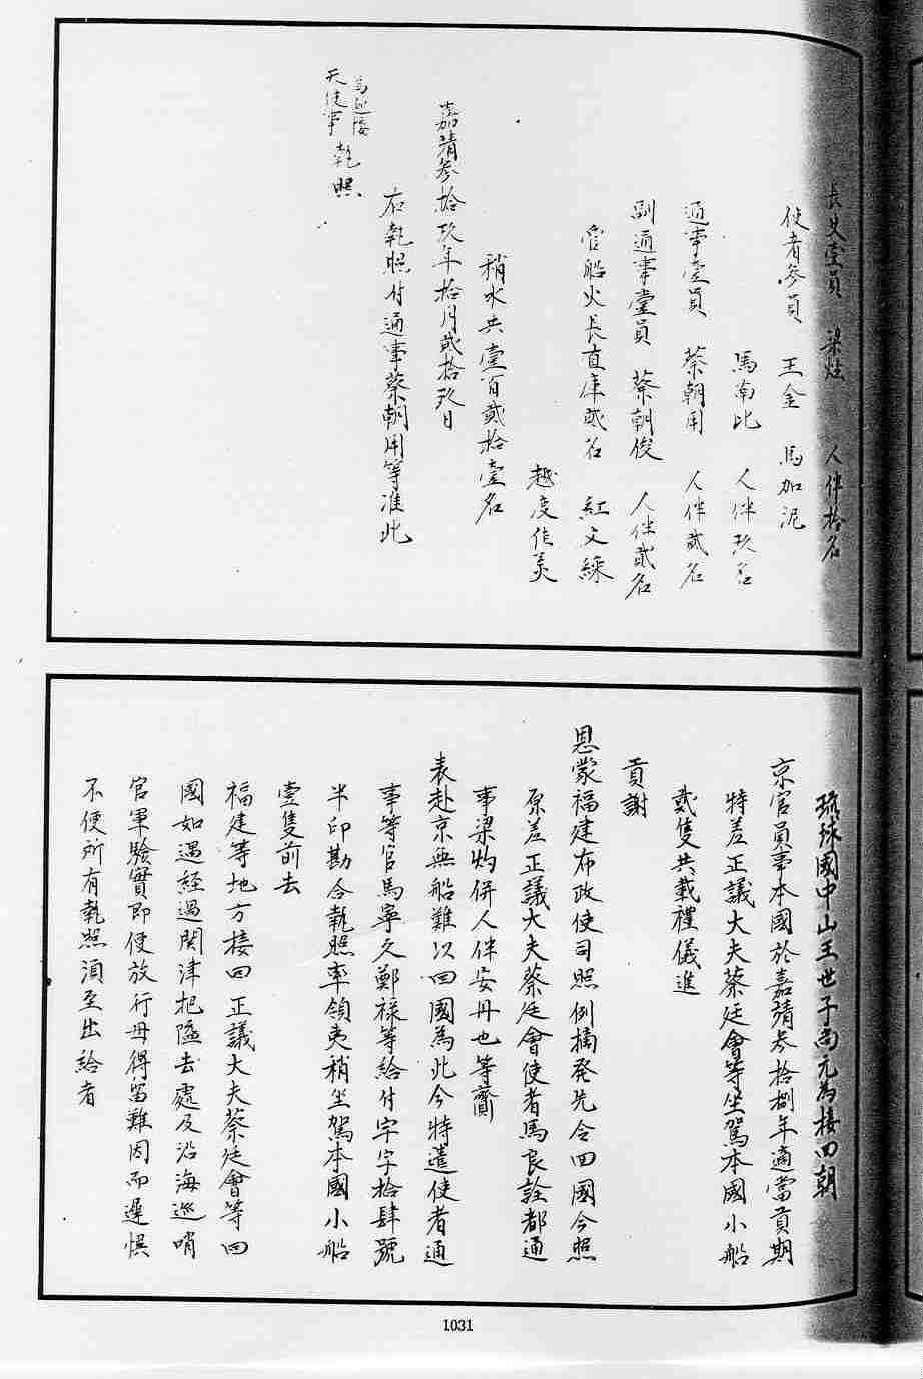 長史壹員　梁炫　人伴拾名
使者參員　王金　馬加泥
馬南比　人伴玖名
通事壹員　蔡朝用　人伴貳名
副通事壹員　蔡朝俊　人伴貳名
管船火長直庫貳名　紅文綵
越度佳美
稍水共壹百貳拾壹名
右執照付通事蔡朝用等准此
嘉靖參拾玖年拾月貳拾玖日
為迎接
天使事　執照
琉球國中山王世子尚元為接回朝
京官員事本國於嘉靖參拾捌年適當貢期
特差正議大夫蔡廷會等坐駕本國小船
貳隻共載禮儀進
貢謝
恩蒙福建布政使司照例摘發先令回國今照
原差正議大夫蔡廷會使者馬良詮都通
事梁灼併人伴安丹也等齎
表赴京無船難以回國為此今特遣使者通
事等官馬寧久鄭祿等給付字字拾肆號
半印勘合執照率領夷稍坐駕本國小船
壹隻前去
福建等地方接回正議大夫蔡廷會等回
國如遇經過関津把隘去處及沿海巡哨
官軍驗實即便放行毋得留難因而遲悞
不便所有執照須至出給者
1031